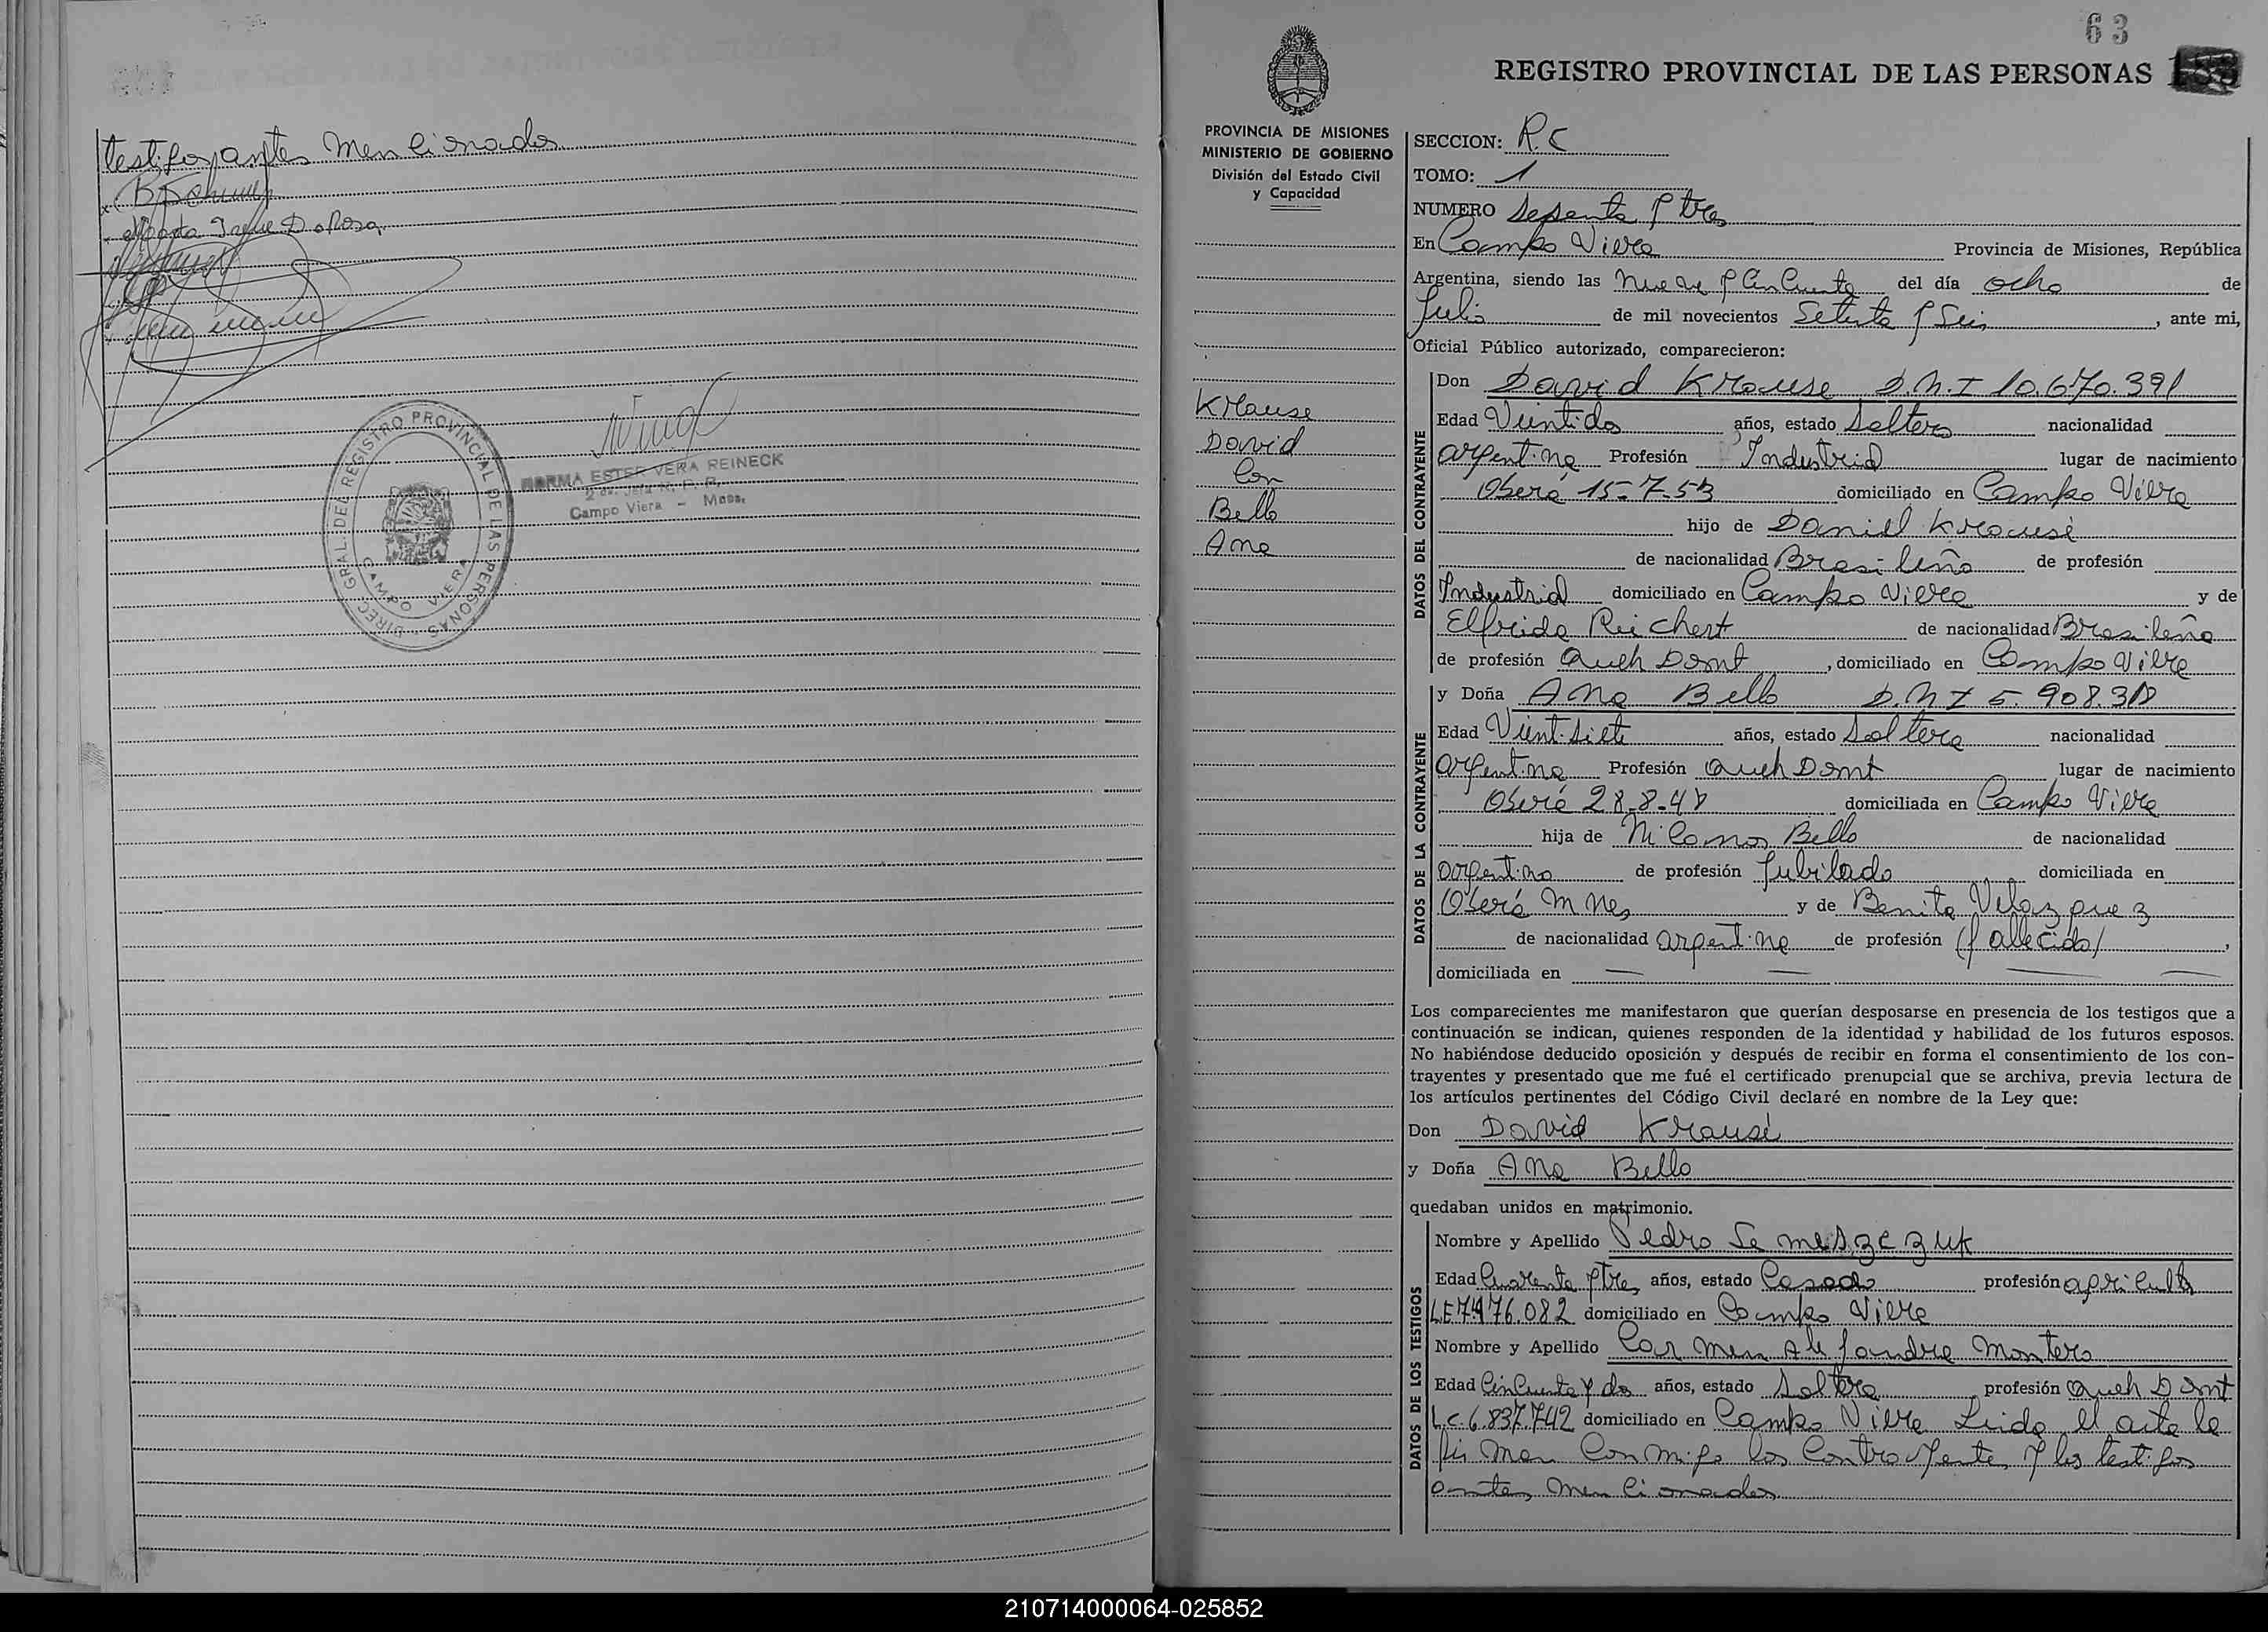 testigos antes Mencionados
DIREC. GRAL. DEL REGISTRO PROVINCIAL DE LAS PERSONAS
CAMPO VIERA
NORMA ESTER VERA REINECK
Campo Viera - Mnes.
63
REGISTRO PROVINCIAL DE LAS PERSONAS
PROVINCIA DE MISIONES
MINISTERIO DE GOBIERNO
División del Estado Civil
y Capacidad
Krause
David
Con
Bello
Ana
SECCION: R.C
TOMO: 1
NUMERO Sesenta y tres
En Campo Viera Provincia de Misiones, República
Argentina, siendo las nueve y Cincuenta del día ocho de
Julio de mil novecientos Setenta y Seis, ante mi,
Oficial Público autorizado, comparecieron:
DATOS DEL CONTRAYENTE
Don David Krause D.N.I 10.670.391
Edad Veintidos años, estado Soltero nacionalidad
argentina Profesión Industrial lugar de nacimiento
Oberá 15-7-53 domiciliado en Campo Viera
hijo de Daniel Krause
de nacionalidad Brasileña de profesión
Industrial domiciliado en Campo Viera y de
Elfrida Reichert de nacionalidad Brasileña
de profesión Queh Domt, domiciliado en Campo Viera
DATOS DE LA CONTRAYENTE
y Doña Ana Bello D.N.I 5.908.3
Edad Veintisiete años, estado Soltera nacionalidad
argentina Profesión Queh Domt lugar de nacimiento
Oberá 28-8-48 domiciliada en Campo Viera
hija de Nicanor Bello de nacionalidad
argentino de profesión Jubilado domiciliada en
Oberá Mnes y de Benita Velazquez
de nacionalidad argentina de profesión (fallecida),
domiciliada en
Los comparecientes me manifestaron que querían desposarse en presencia de los testigos que a
continuación se indican, quienes responden de la identidad y habilidad de los futuros esposos.
No habiéndose deducido oposición y después de recibir en forma el consentimiento de los con-
trayentes y presentado que me fué el certificado prenupcial que se archiva, previa lectura de
los artículos pertinentes del Código Civil declaré en nombre de la Ley que:
Don David Krause
y Doña Ana Bello
quedaban unidos en matrimonio.
DATOS DE LOS TESTIGOS
Nombre y Apellido Pedro Semeszczuk
Edad Cuarenta y tres años, estado Casado profesión agricultr
L.E 7.476.082 domiciliado en Campo Viera
Nombre y Apellido Carmen Alejandra Montero
Edad Cincuenta y dos años, estado Soltera profesión Queh Domt
L.C. 6.837.742 domiciliado en Campo Viera Leida el acta la
firman Conmigo los Contrayentes y los testigos
antes mencionados
210714000064-025852